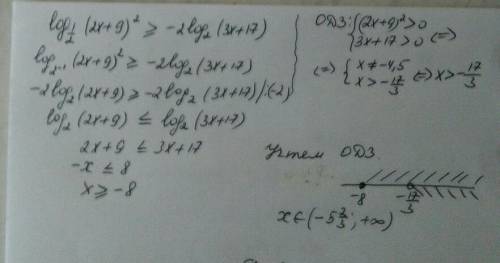 log_{1/2} (2x+9)² ⩾ -2log₂ (3x+17)
log_{2⁻¹} (2x+9)² ⩾ -2log₂ (3x+17)
-2log₂ (2x+9) ⩾ -2log₂ (3x+17) /:(-2)
log₂ (2x+9) ≤ log₂ (3x+17)
2x+9 ≤ 3x+17
-x ≤ 8
x ⩾ -8
ОДЗ: { (2x+9)² > 0
3x+17 > 0 (=)
(=) { x ≠ -4,5
x > -17/3 (=) x > -17/3
Учтем ОДЗ
-8 -17/3
x ∈ (-5 2/3; +∞)